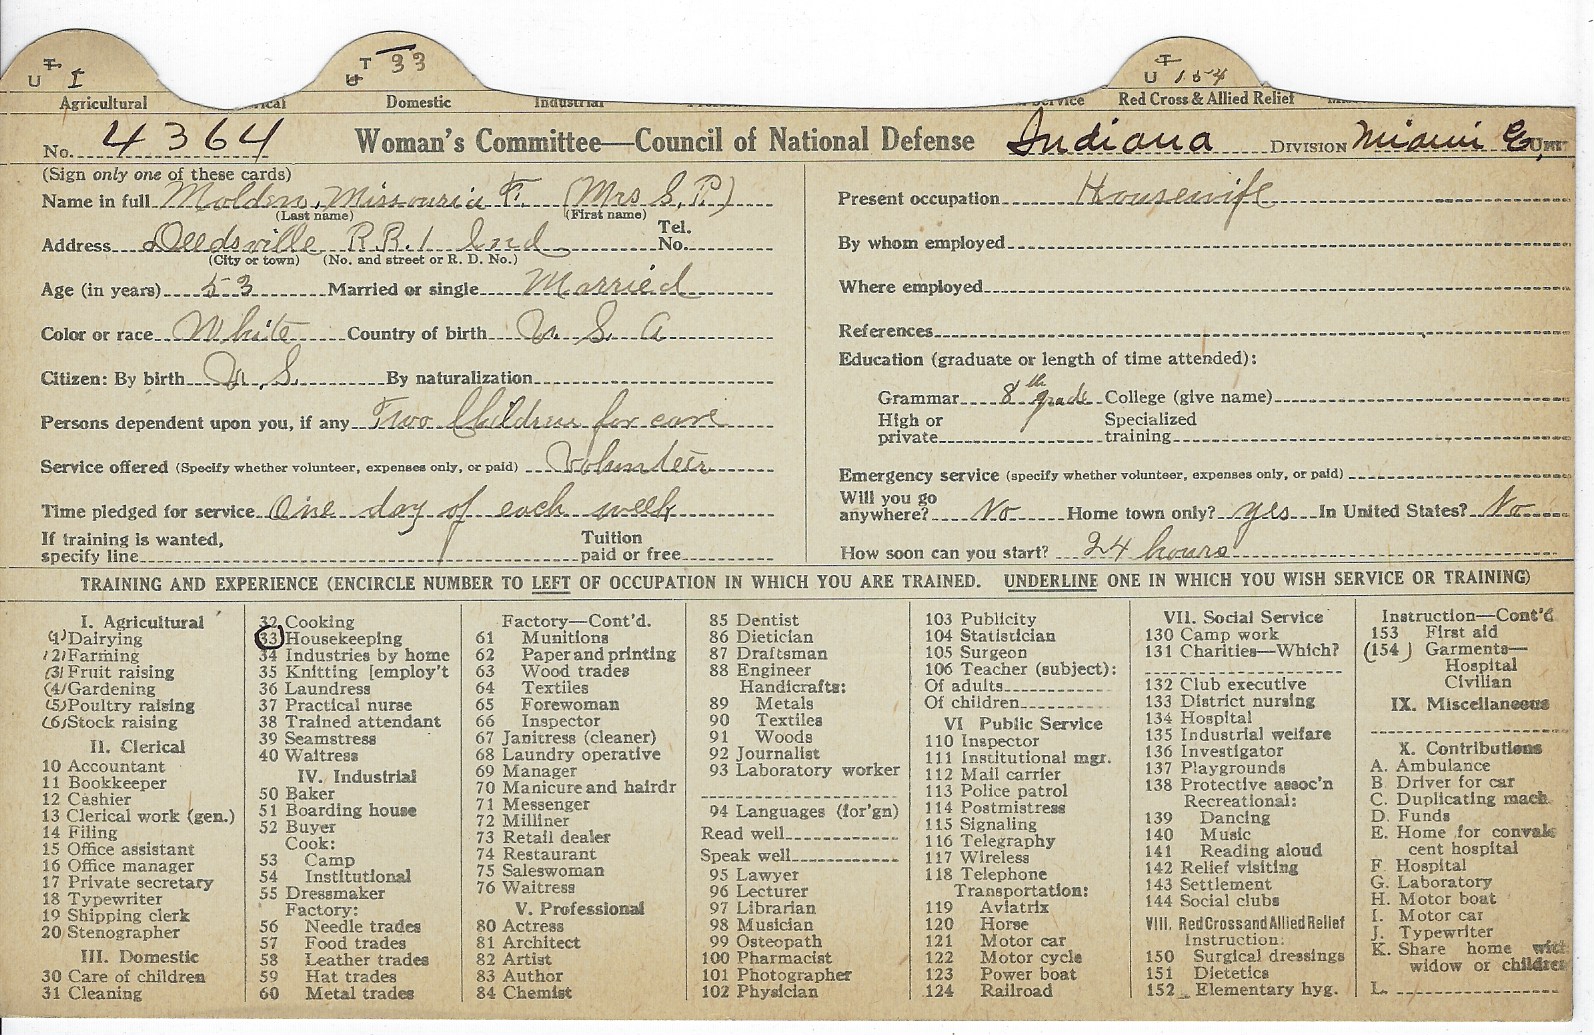 U T I
U T 33
T U 154
Agricultural Domestic Industrial Service Red Cross & Allied Relief
No. 4364 Woman's Committee—Council of National Defense Indiana DIVISION Miami Co. UNIT
(Sign only one of these cards)
Name in full Molden, Missouria F. (Mrs S. P.)
(Last name) (First name)
Address Deedsville R.R.1 Ind Tel. No.
(City or town) (No. and street or R. D. No.)
Age (in years) 53 Married or single Married
Color or race White Country of birth U. S. A
Citizen: By birth U. S. By naturalization
Persons dependent upon you, if any Two Children for care
Service offered (Specify whether volunteer, expenses only, or paid) Volunteer
Time pledged for service One day of each week
If training is wanted, specify line Tuition paid or free
Present occupation Housewife
By whom employed
Where employed
References
Education (graduate or length of time attended):
Grammar 8th grade College (give name)
High or private Specialized training
Emergency service (specify whether volunteer, expenses only, or paid)
Will you go anywhere? No Home town only? yes In United States? No
How soon can you start? 24 hours
TRAINING AND EXPERIENCE (ENCIRCLE NUMBER TO LEFT OF OCCUPATION IN WHICH YOU ARE TRAINED. UNDERLINE ONE IN WHICH YOU WISH SERVICE OR TRAINING)
I. Agricultural
(1) Dairying
(2) Farming
(3) Fruit raising
(4) Gardening
(5) Poultry raising
(6) Stock raising
II. Clerical
10 Accountant
11 Bookkeeper
12 Cashier
13 Clerical work (gen.)
14 Filing
15 Office assistant
16 Office manager
17 Private secretary
18 Typewriter
19 Shipping clerk
20 Stenographer
III. Domestic
30 Care of children
31 Cleaning
32 Cooking
33 Housekeeping
34 Industries by home
35 Knitting [employ't
36 Laundress
37 Practical nurse
38 Trained attendant
39 Seamstress
40 Waitress
IV. Industrial
50 Baker
51 Boarding house
52 Buyer
Cook:
53 Camp
54 Institutional
55 Dressmaker
Factory:
56 Needle trades
57 Food trades
58 Leather trades
59 Hat trades
60 Metal trades
Factory—Cont'd.
61 Munitions
62 Paper and printing
63 Wood trades
64 Textiles
65 Forewoman
66 Inspector
67 Janitress (cleaner)
68 Laundry operative
69 Manager
70 Manicure and hairdr
71 Messenger
72 Milliner
73 Retail dealer
74 Restaurant
75 Saleswoman
76 Waitress
V. Professional
80 Actress
81 Architect
82 Artist
83 Author
84 Chemist
85 Dentist
86 Dietician
87 Draftsman
88 Engineer
Handicrafts:
89 Metals
90 Textiles
91 Woods
92 Journalist
93 Laboratory worker
94 Languages (for'gn)
Read well
Speak well
95 Lawyer
96 Lecturer
97 Librarian
98 Musician
99 Osteopath
100 Pharmacist
101 Photographer
102 Physician
103 Publicity
104 Statistician
105 Surgeon
106 Teacher (subject):
Of adults
Of children
VI Public Service
110 Inspector
111 Institutional mgr.
112 Mail carrier
113 Police patrol
114 Postmistress
115 Signaling
116 Telegraphy
117 Wireless
118 Telephone
Transportation:
119 Aviatrix
120 Horse
121 Motor car
122 Motor cycle
123 Power boat
124 Railroad
VII. Social Service
130 Camp work
131 Charities—Which?
132 Club executive
133 District nursing
134 Hospital
135 Industrial welfare
136 Investigator
137 Playgrounds
138 Protective assoc'n
Recreational:
139 Dancing
140 Music
141 Reading aloud
142 Relief visiting
143 Settlement
144 Social clubs
VIII. Red Cross and Allied Relief
Instruction:
150 Surgical dressings
151 Dietetics
152 Elementary hyg.
Instruction—Cont'd
153 First aid
(154) Garments—
Hospital
Civilian
IX. Miscellaneous
X. Contributions
A. Ambulance
B Driver for car
C. Duplicating mach.
D. Funds
E. Home for convales
cent hospital
F. Hospital
G. Laboratory
H. Motor boat
I. Motor car
J. Typewriter
K. Share home with
widow or children
L.